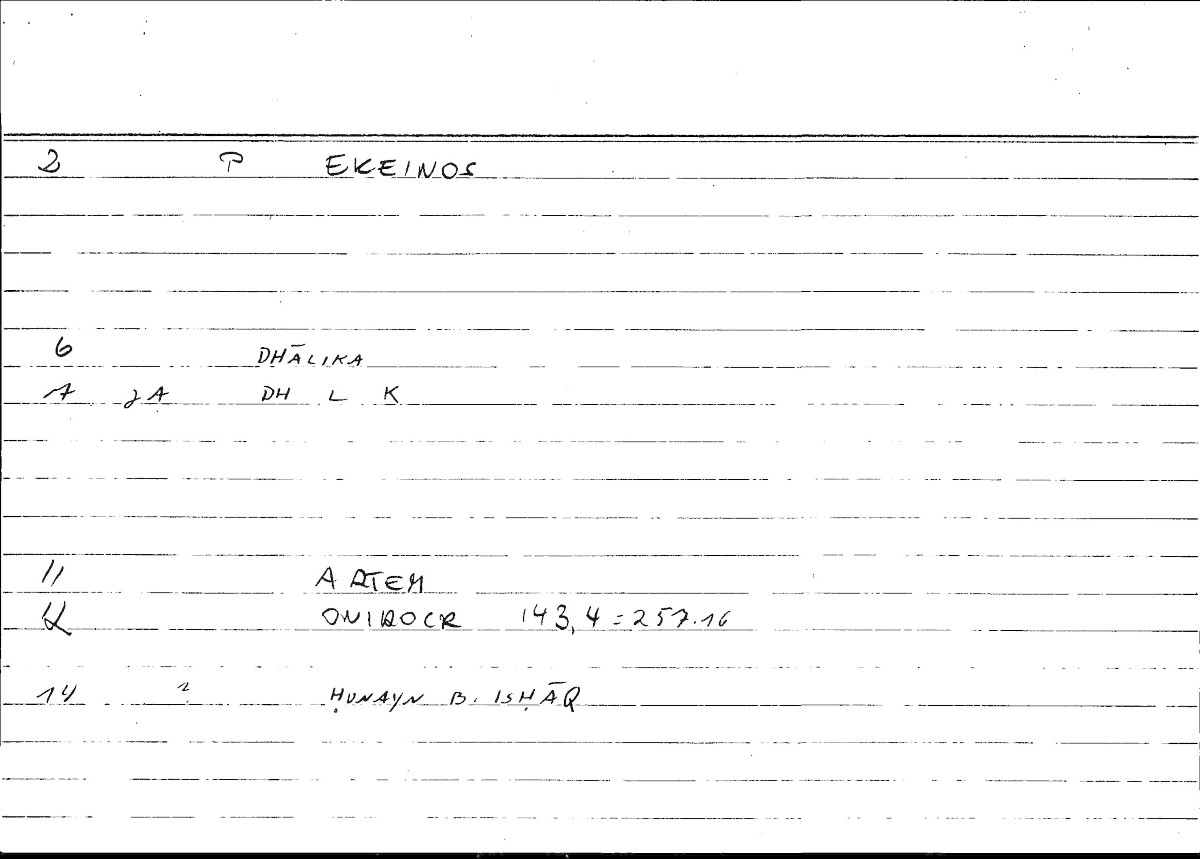 2 P EKEINOS
6 DHĀLIKA
7 2A DH L K
11 ARTEM
12 ONIROCR 143,4 = 257.16
14 2 ḤUNAYN B. ISḤĀQ